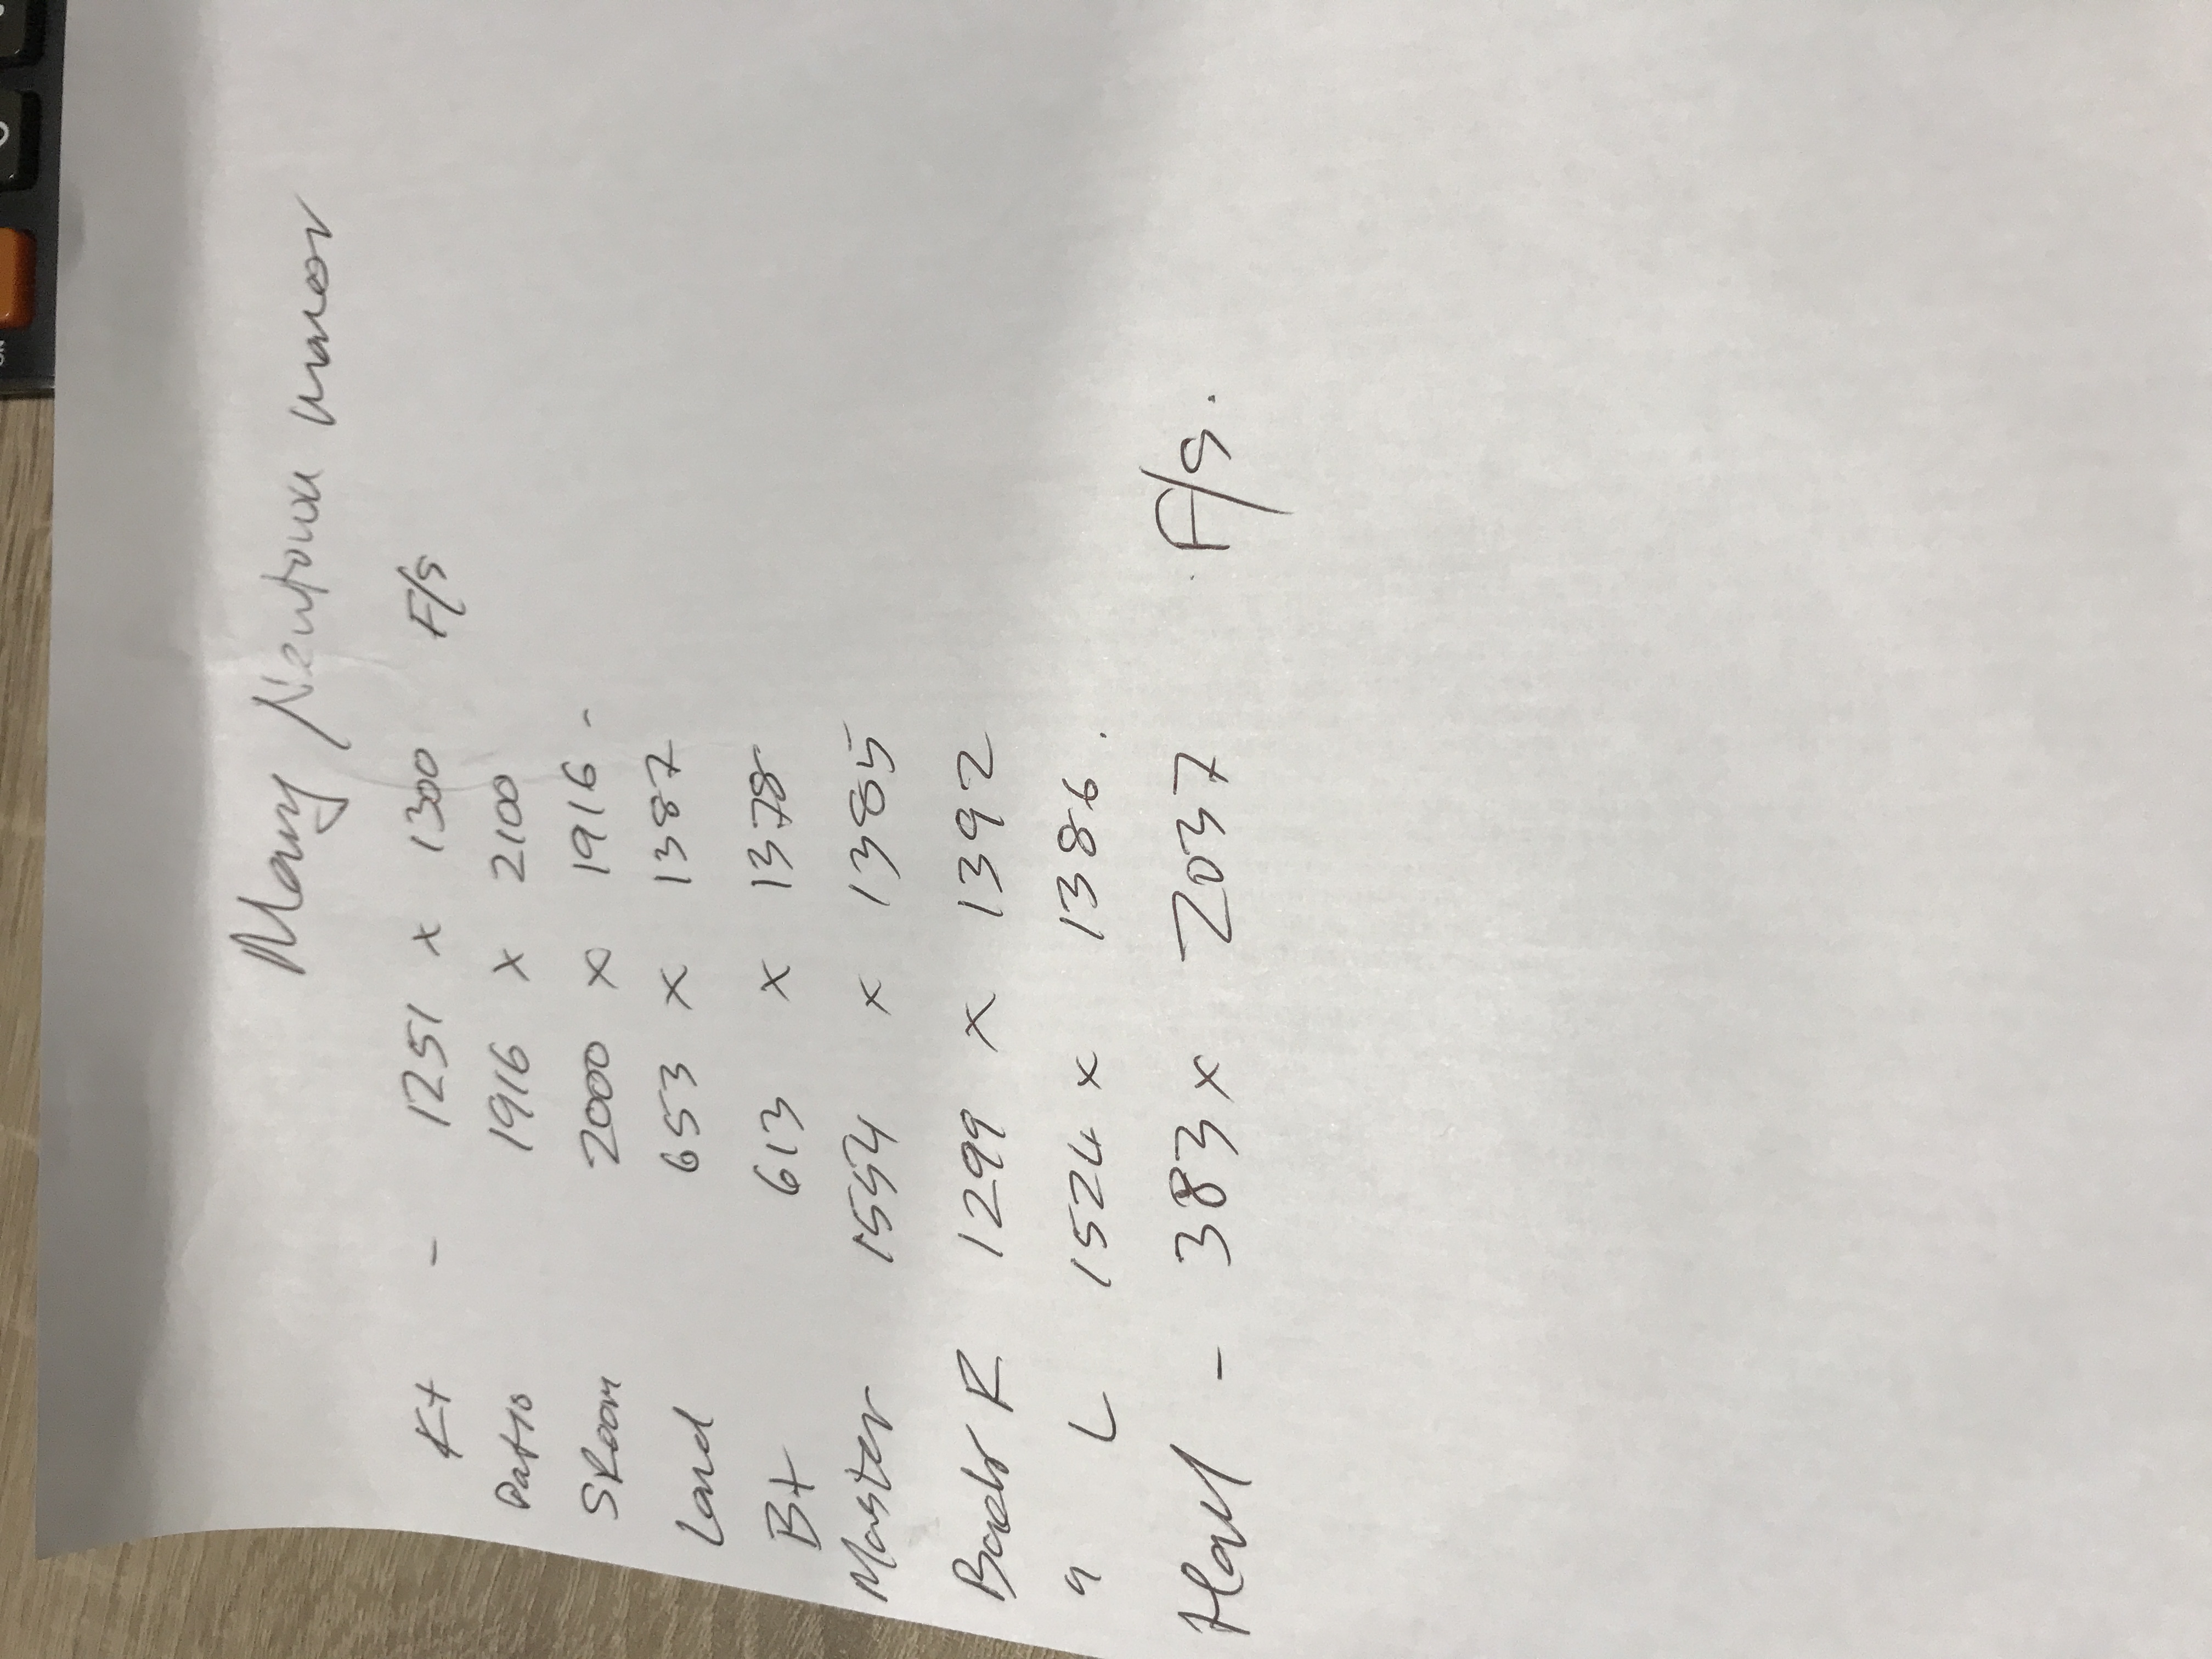 Mary Newtown manor
Kt - 1251 x 1300 F/s
Patio 1916 x 2100
SRoom 2000 x 1916 -
Land 653 x 1387
Bt 613 x 1378
Master 1554 x 1385
Back R 1299 x 1392
" L 1524 x 1386.
Hall - 383 x 2037 . F/s.